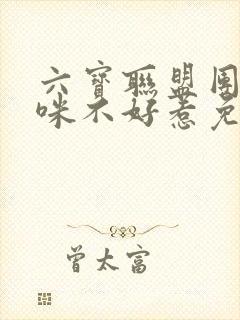 六寶聯盟團
咪不好惹免
曾太富